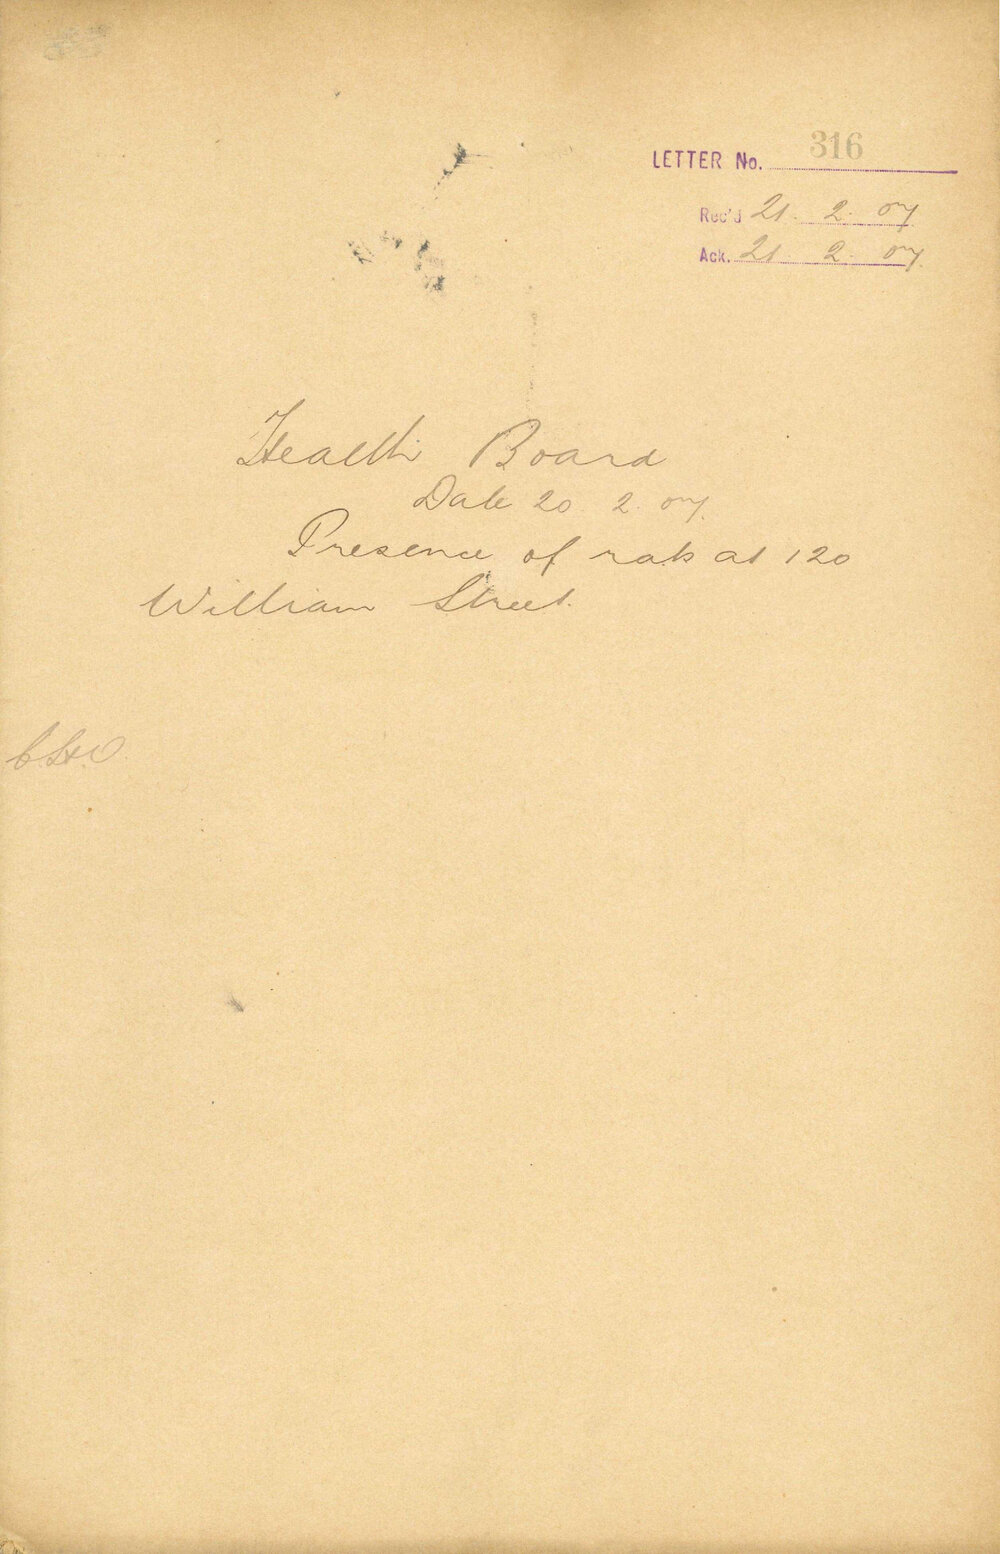 LETTER No. 316
Rec'd 21. 2. 07
Ack. 21. 2. 07.
Health Board
Date 20. 2. 07.
Presence of rats at 120
William Street.
C.H.O.